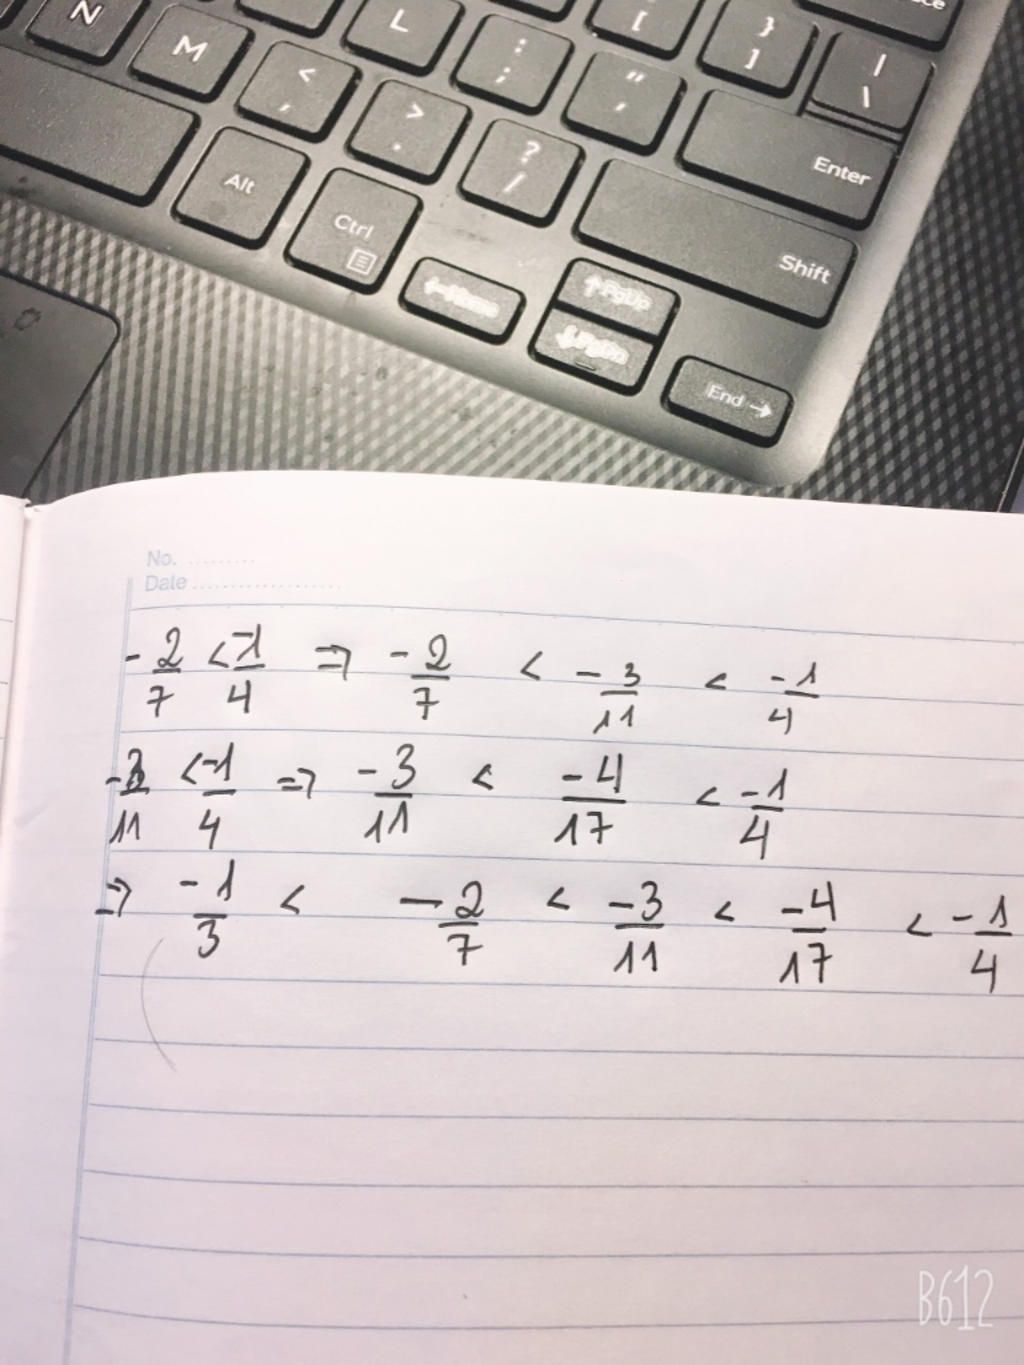 N M L : ; { [ } ] | \
< , > . ? / " ' Enter
Alt Ctrl Shift
←Home ↑PgUp
↓PgDn
End →
No. ..........
Date ....................
-2/7 < -1/4 ⇒ -2/7 < -3/11 < -1/4
-3/11 < -1/4 ⇒ -3/11 < -4/17 < -1/4
⇒ -1/3 < -2/7 < -3/11 < -4/17 < -1/4
B612